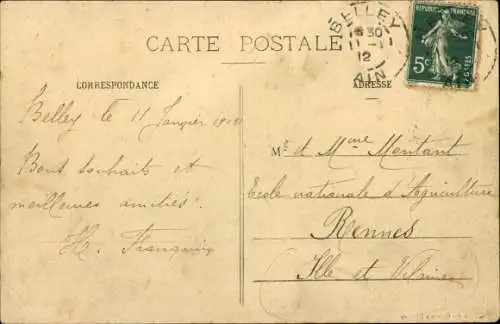 CARTE POSTALE
BELLEY
30
11 - 1
12
AIN
REPUBLIQUE FRANÇAISE
5c
POSTES
CORRESPONDANCE
ADRESSE
Belley le 11 Janvier 1912
Bons souhaits et
meilleures amitiés.
H.
Mr et Mme Montant
Ecole nationale d'Agriculture
Rennes
Ille et Vilaine